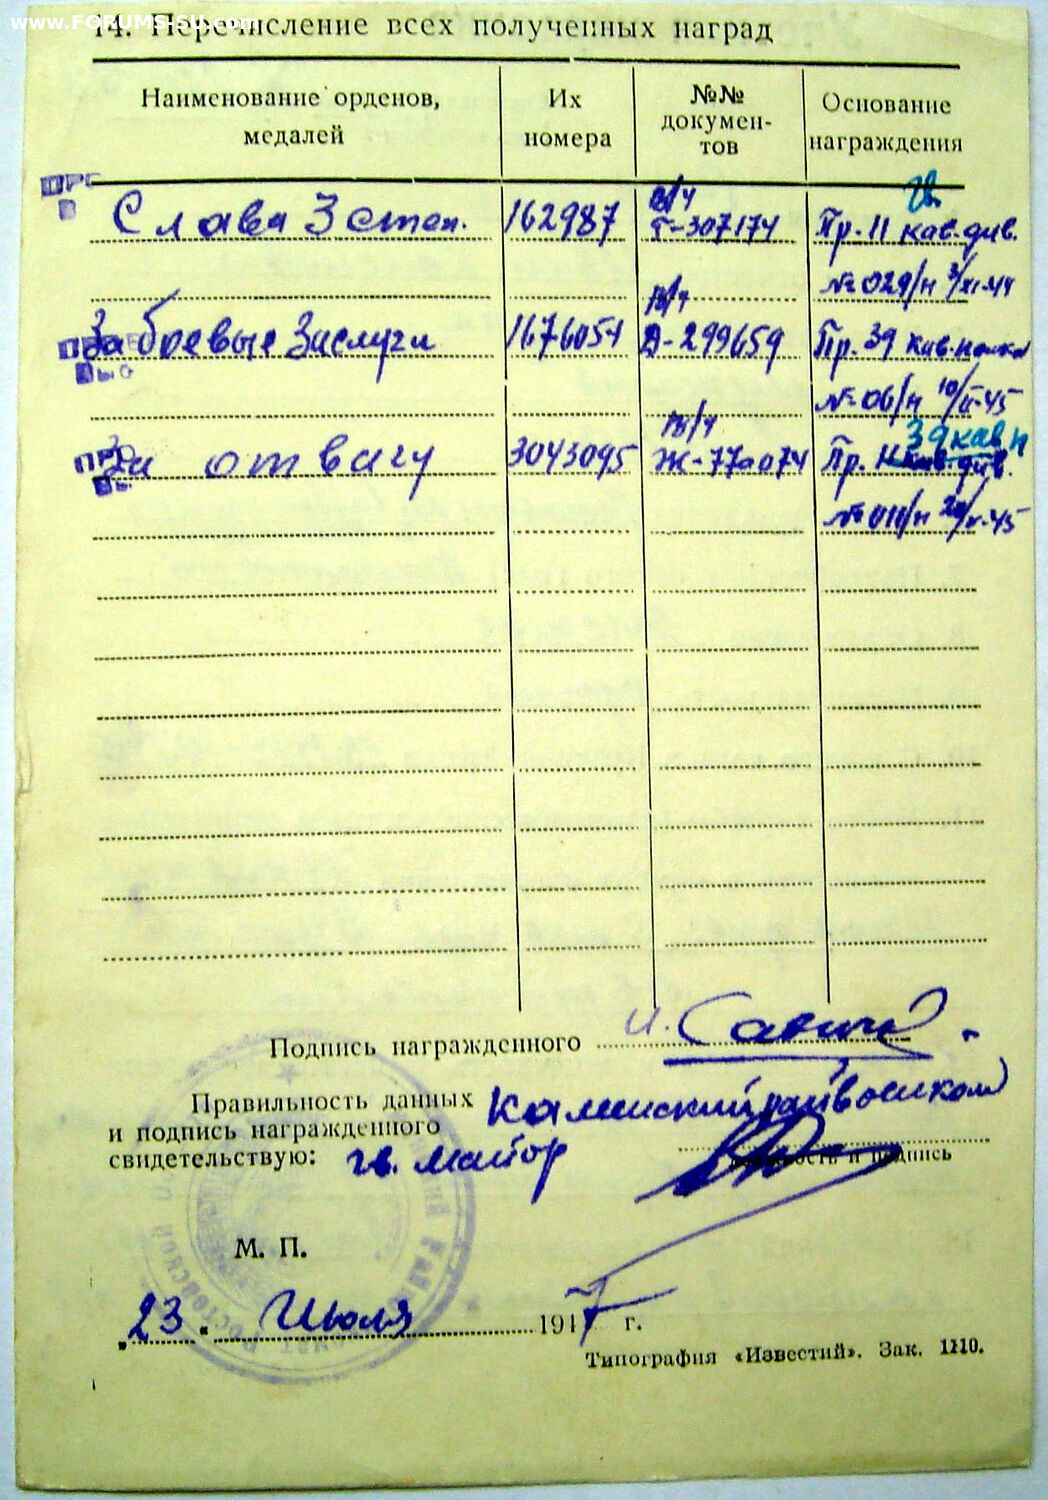 www.FORUMS-SU.com
14. Перечисление всех полученных наград
Наименование орденов, медалей
Их номера
№№ докумен-тов
Основание награждения
гв.
Слава 3 степ. 162987 Г-307174 Пр. 11 кав. див.
№ 029/н 3/XI-44
За боевые Заслуги 1676054 Д-299659 Пр. 39 кав. полка
№ 06/н 10/II-45
39 кав п
За отвагу 3043095 Ж-770074 Пр. 11 кав. див.
№ 011/н 20/V-45
Подпись награжденного И. Савич
Правильность данных Каменский райвоенком
и подпись награжденного
свидетельствую: гв. майор
должность и подпись
М. П.
„23“ Июля 1947 г.
Типография «Известий». Зак. 1110.